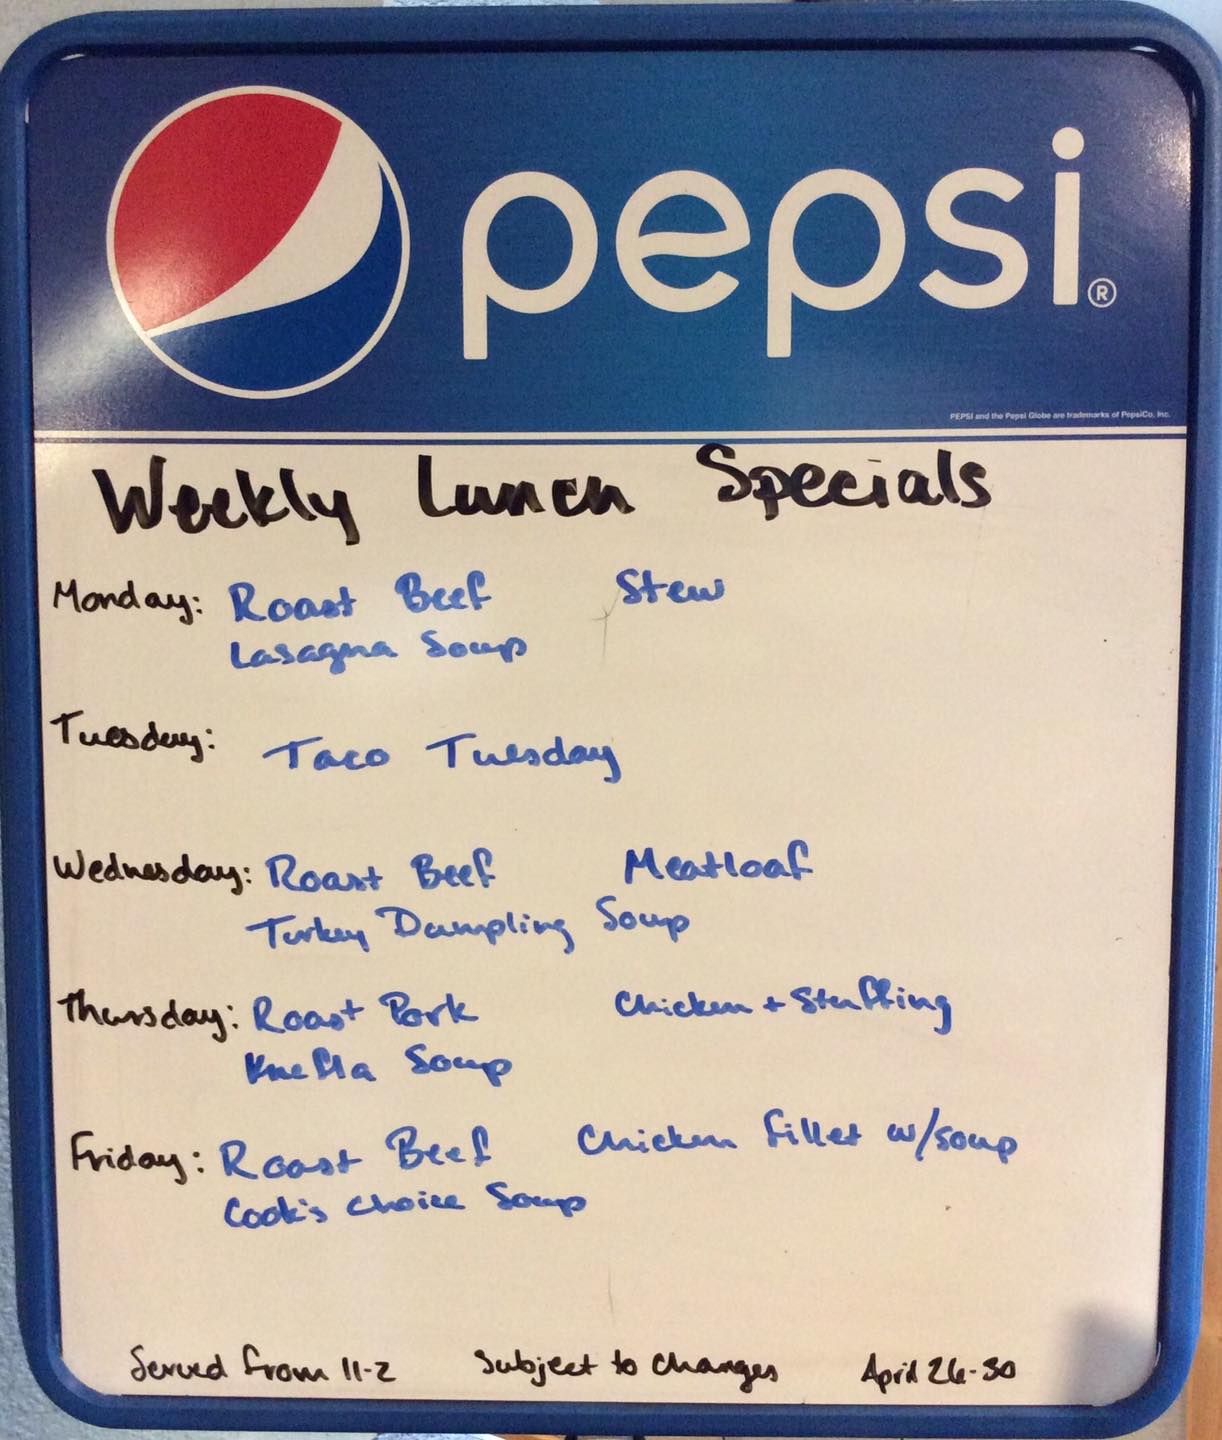 pepsi®
PEPSI and the Pepsi Globe are trademarks of PepsiCo, Inc.
Weekly Lunch Specials
Monday: Roast Beef Stew
Lasagna Soup
Tuesday: Taco Tuesday
Wednesday: Roast Beef Meatloaf
Turkey Dumpling Soup
Thursday: Roast Pork Chicken + Stuffing
Knefla Soup
Friday: Roast Beef Chicken fillet w/soup
Cook's Choice Soup
Served from 11-2 Subject to changes April 26-30